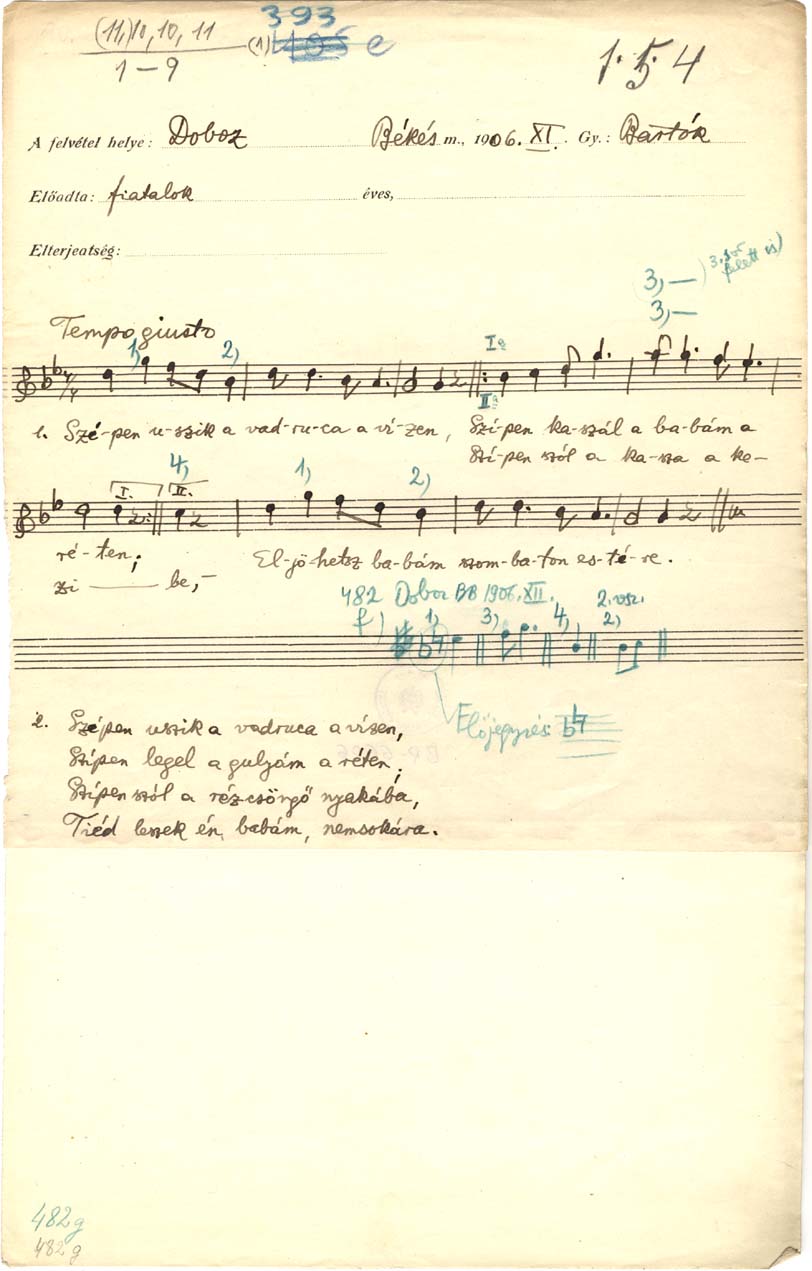 (11,)10, 10, 11
1 – 9
(1)
393
e
1. 5. 4
A felvétel helye: Doboz Békés m., 1906. XI. Gy.: Bartók
Előadta: fiatalok éves,
Elterjedtség:
3, — ) 3. sor felett is)
3, —
Tempo giusto
1) 2) Iª
IIª
1. Szé-pen u-szik a vad-ru-ca a ví-zen, Szí-pen ka-szál a ba-bám a
Szí-pen szól a ka-sza a ke-
4, 1) 2)
I. II.
ré-ten; El-jö-hetsz ba-bám szom-ba-ton es-té-re.
zi — be,-
482 Doboz BB 1906. XII. 2. vsz.
f) 1) 3) 4) 2)
Előjegyzés:
2. Szépen uszik a vadruca a vízen,
Szípen legel a gulyám a réten;
Szípen szól a rézcsöngő nyakába,
Tiéd leszek én, babám, nemsokára.
482 g
482 g